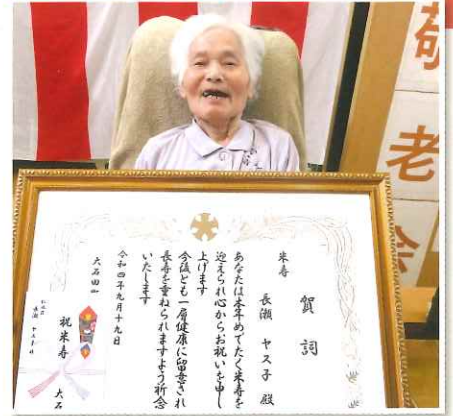 敬老会
賀詞
米寿
長瀬 ヤス子 殿
あなたは本年めでたく米寿を
迎えられ心からお祝いを申し
上げます
今後とも一層健康に留意され
長寿を重ねられますよう祈念
いたします
令和四年九月十九日
大石田
祝米寿
大石